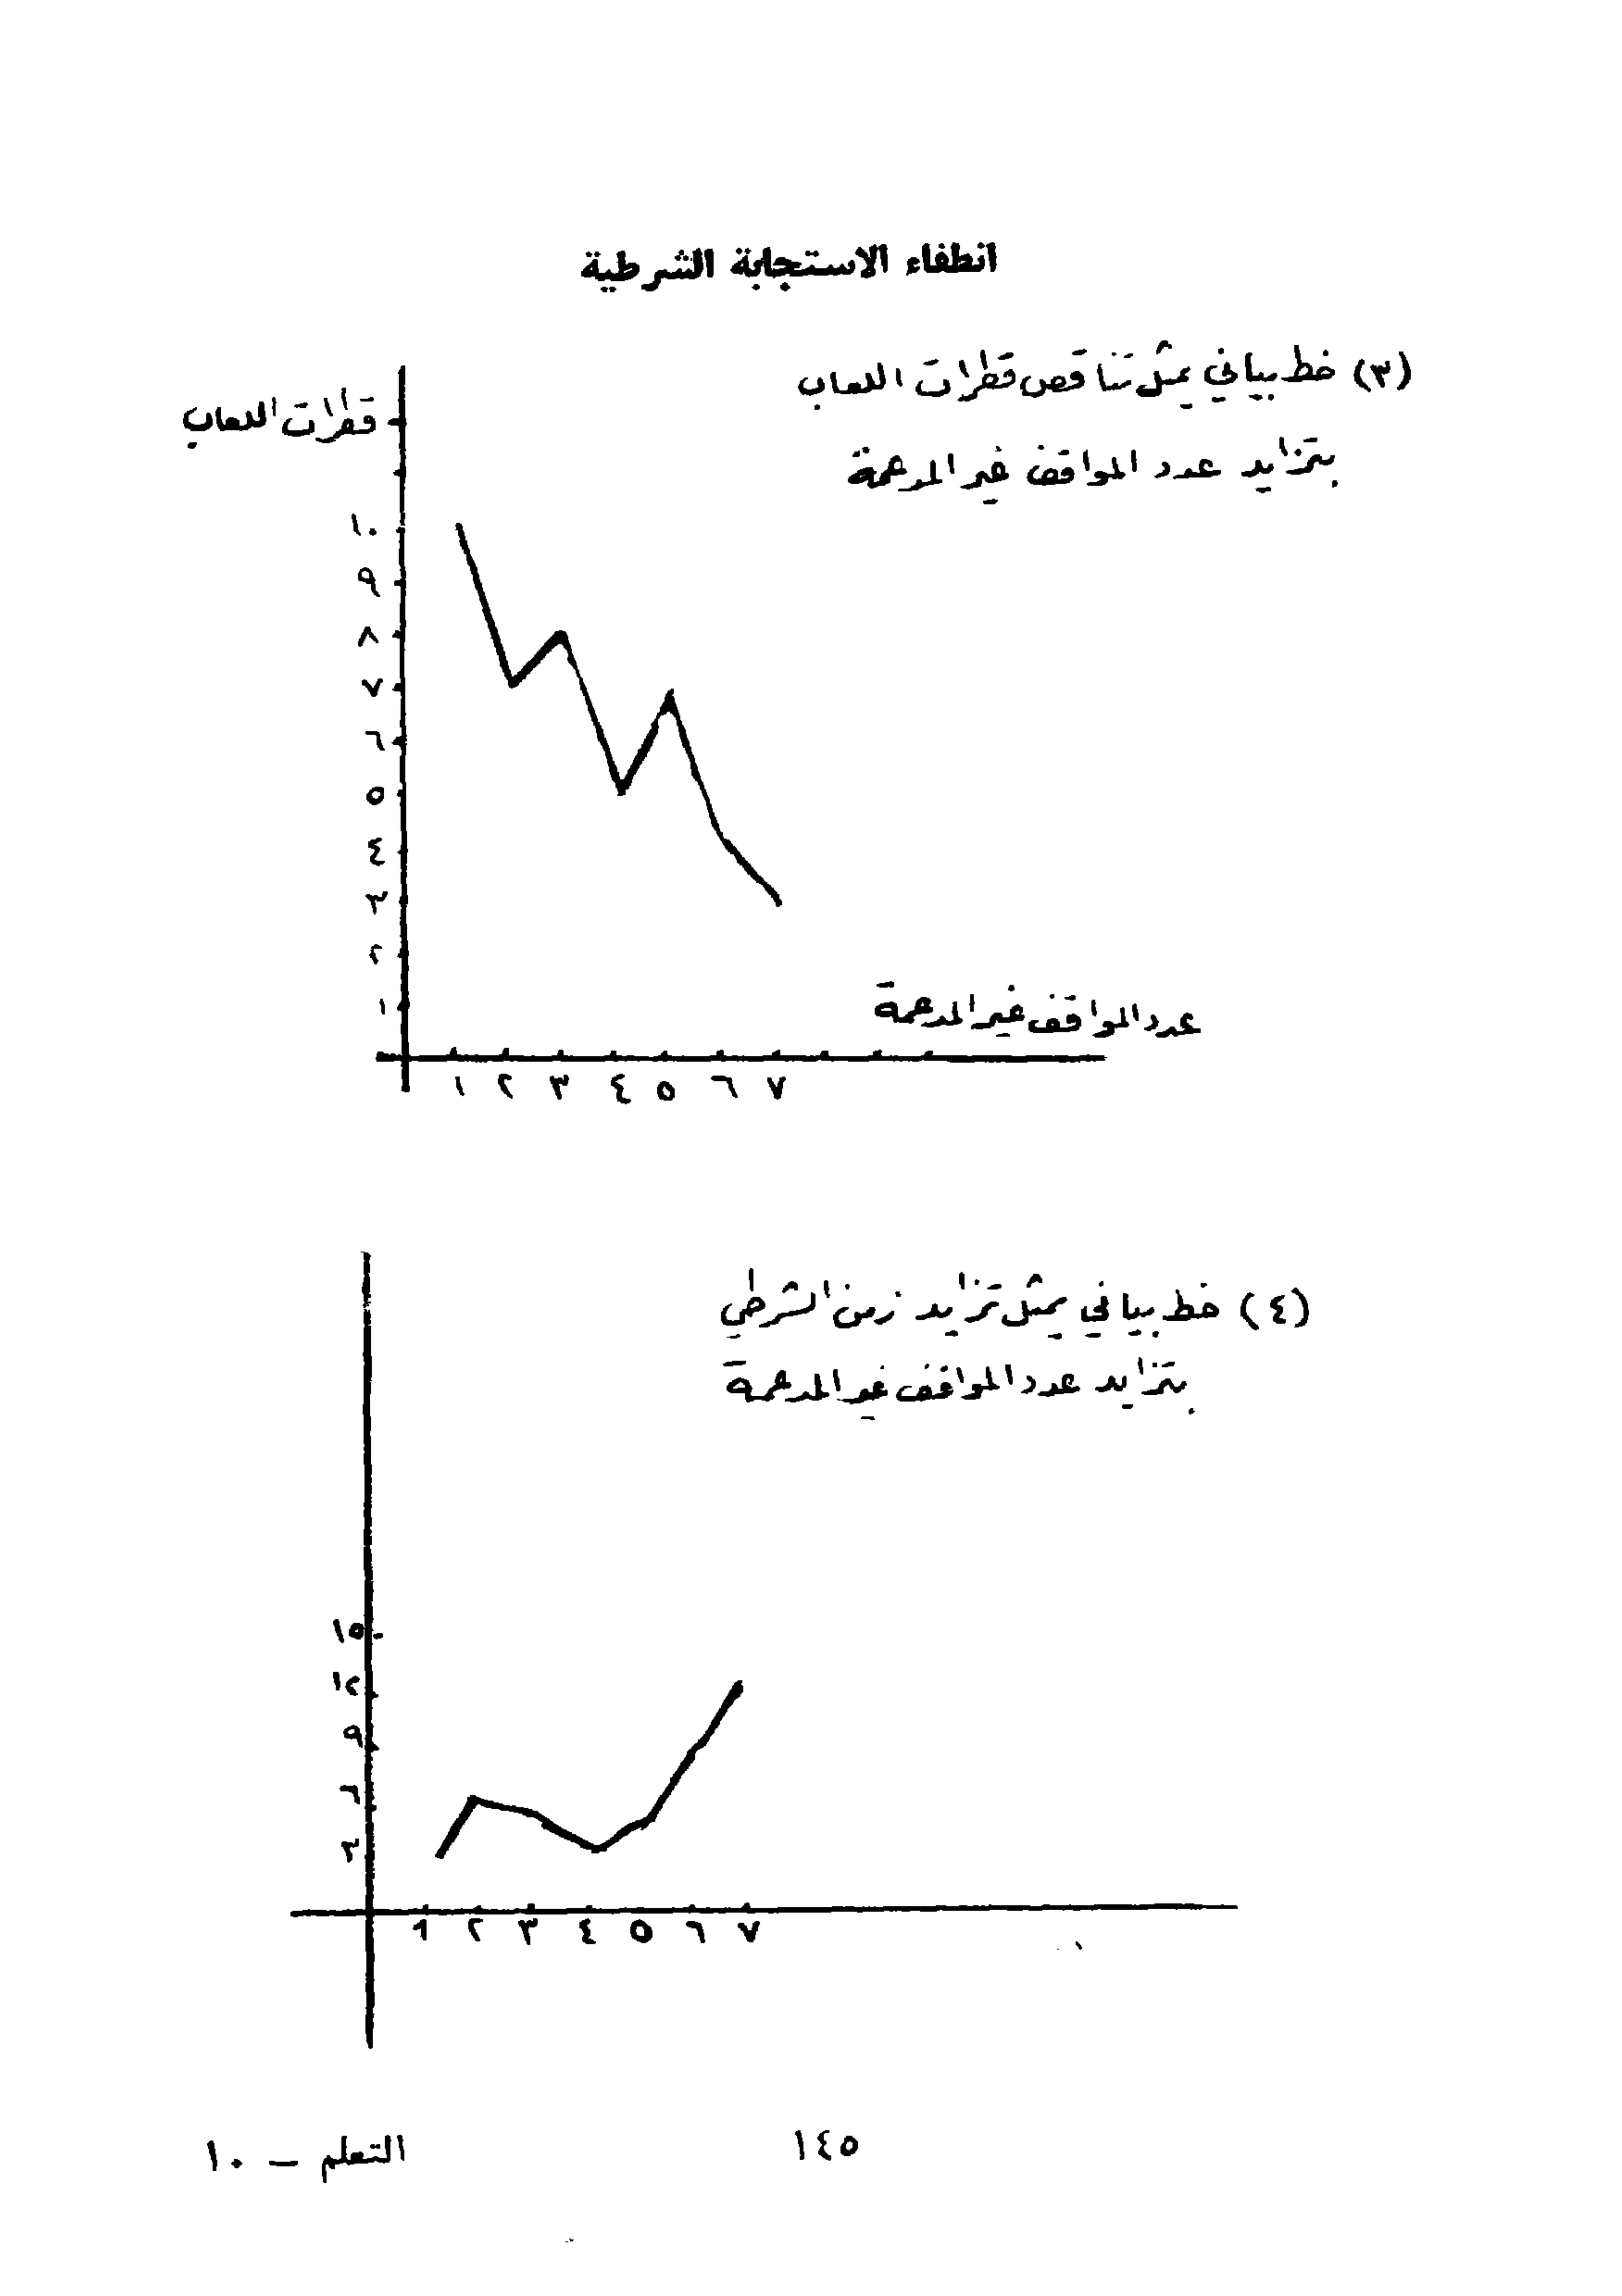 انطفاء الاستجابة الشرطية
(٣) خط بياني يمثل تناقص قطرات اللعاب
بتزايد عدد المواقف غير المدعمة
قطرات اللعاب
١٠
٩
٨
٧
٦
٥
٤
٣
٢
١
عدد المواقف غير المدعمة
١ ٢ ٣ ٤ ٥ ٦ ٧
(٤) خط بياني يمثل تزايد زمن الشرطي
بتزايد عدد المواقف غير المدعمة
١٥
١٢
٩
٦
٣
١ ٢ ٣ ٤ ٥ ٦ ٧
١٤٥
التعلم – ١٠